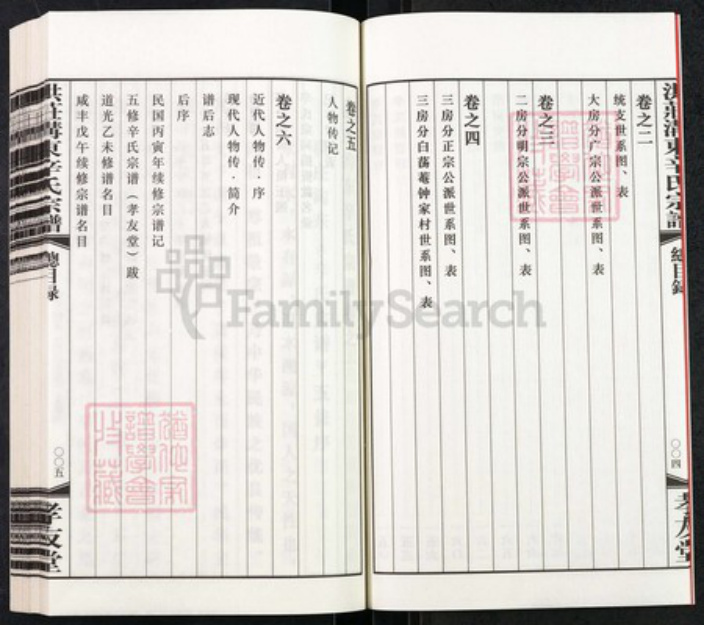 洪莊溝東辛氏宗譜
總目録
〇〇四
孝友堂
卷之二
统支世系图、表
大房分广宗公派世系图、表
卷之三
二房分明宗公派世系图、表
卷之四
三房分正宗公派世系图、表
三房分白荡菴钟家村世系图、表
卷之五
人物传记
卷之六
近代人物传·序
现代人物传·简介
谱后志
后序
民国丙寅年续修宗谱记
五修辛氏宗谱(孝友堂)跋
道光乙未修谱名目
咸丰戊午续修宗谱名目
洪莊溝東辛氏宗譜
總目録
〇〇五
孝友堂
FamilySearch